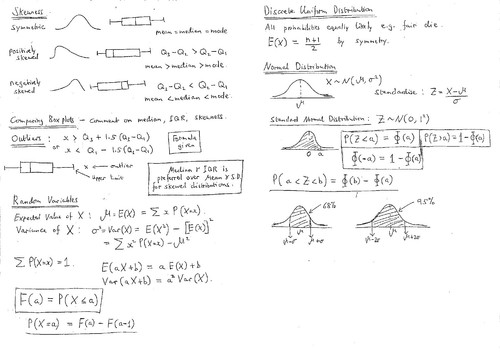 Skewness
symmetric
mean = median = mode
positively skewed
Q3 - Q2 > Q2 - Q1
mean > median > mode.
negatively skewed
Q3 - Q2 < Q2 - Q1
mean < median < mode.
Comparing Box plots - Comment on median, IQR, skewness.
Outliers : x > Q3 + 1.5(Q3-Q1)
or x < Q1 - 1.5(Q3-Q1)
Formula given
x ← outlier
upper limit
Median & IQR is preferred over Mean & S.D. for skewed distributions.
Random Variables
Expected Value of X : μ = E(X) = Σ x P(X=x).
Variance of X : σ² = Var(X) = E(X²) - [E(X)]²
= Σ x² P(X=x) - μ²
Σ P(X=x) = 1.
E(aX+b) = a E(X) + b
Var(aX+b) = a² Var(X).
F(a) = P(X ≤ a)
P(X=a) = F(a) - F(a-1)
Discrete Uniform Distribution
All probabilities equally likely e.g. fair die.
E(X) = (n+1)/2 by symmetry.
Normal Distribution
X ~ N(μ, σ²)
μ
Standardise : Z = (X-μ)/σ
Standard Normal Distribution : Z ~ N(0, 1²)
0 a
P(Z<a) = Φ(a)
P(Z>a) = 1 - Φ(a)
Φ(-a) = 1 - Φ(a)
P(a < Z < b) = Φ(b) - Φ(a)
68%
μ-σ μ μ+σ
95%
μ-2σ μ μ+2σ